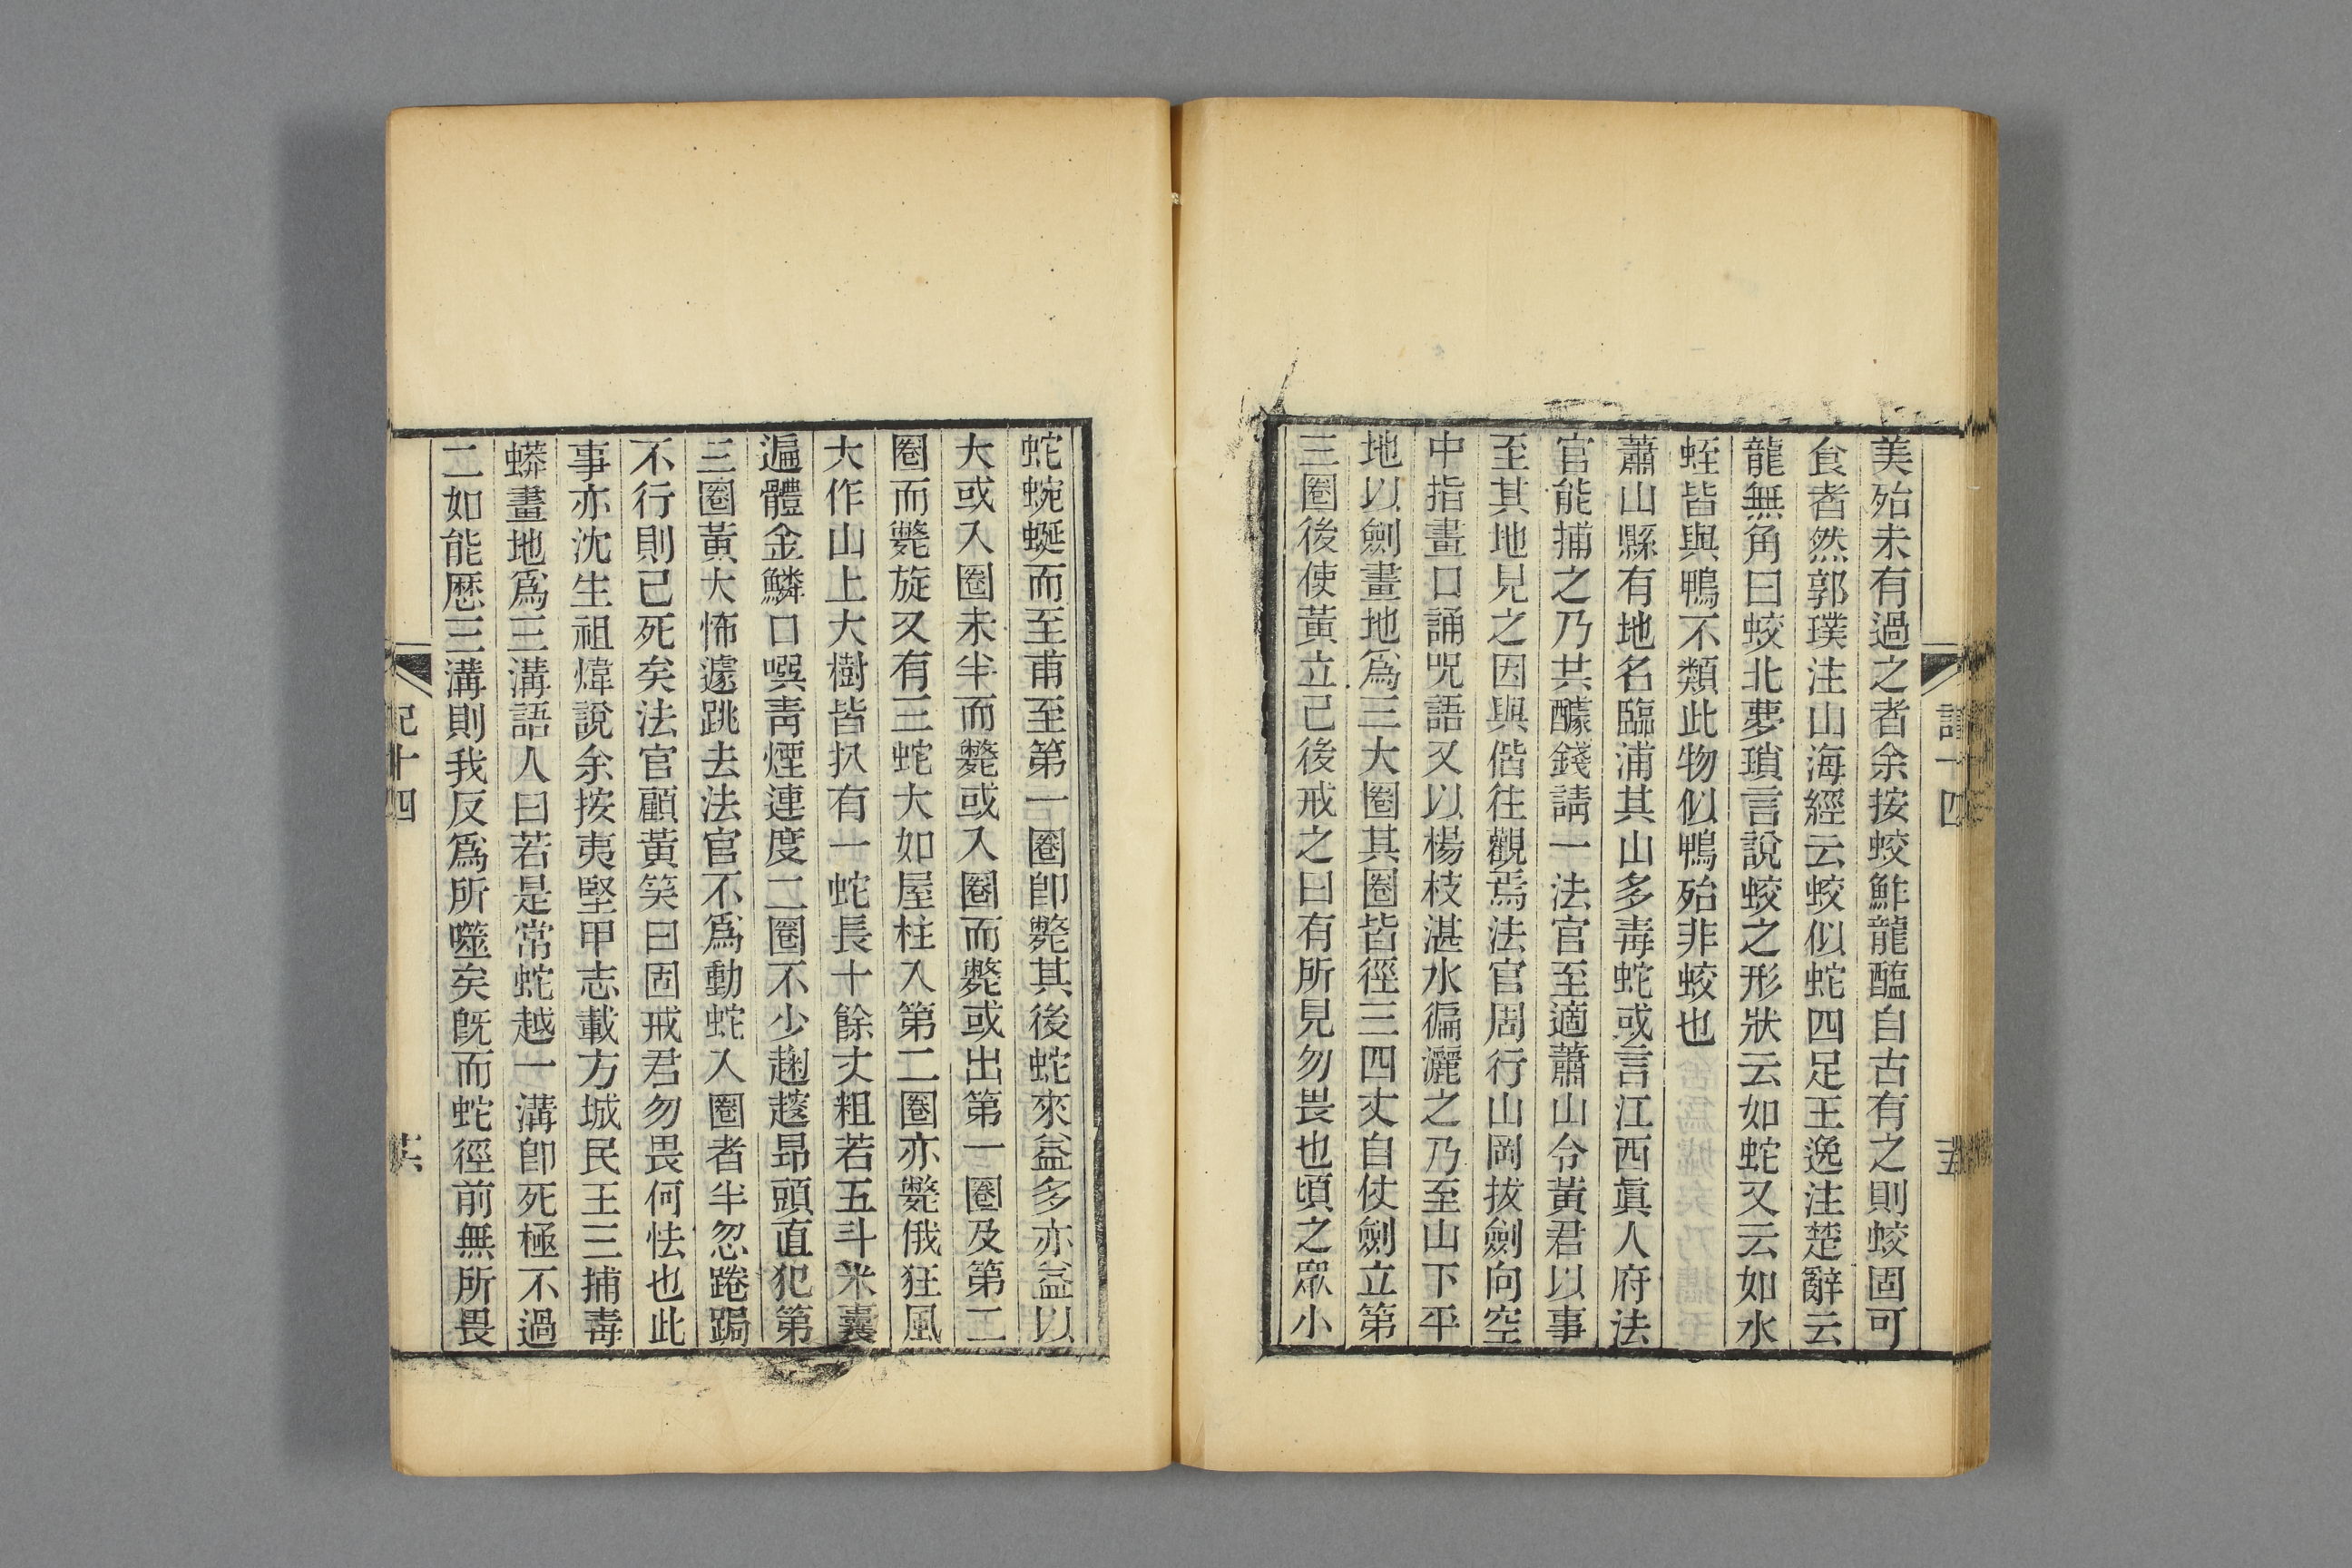 美殆未有過之者余按蛟鮓龍醢自古有之則蛟固可
食者然郭璞注山海經云蛟似蛇四足王逸注楚辭云
龍無角曰蛟北夢瑣言說蛟之形狀云如蛇又云如水
蛭皆與鴨不類此物似鴨殆非蛟也
蕭山縣有地名臨浦其山多毒蛇或言江西眞人府法
官能捕之乃共醵錢請一法官至適蕭山令黃君以事
至其地見之因與偕往觀焉法官周行山岡拔劍向空
中指畫口誦咒語又以楊枝湛水徧灑之乃至山下平
地以劍畫地爲三大圈其圈皆徑三四丈自仗劍立第
三圈後使黃立己後戒之曰有所見勿畏也頃之眾小
蛇蜿蜒而至甫至第一圈卽斃其後蛇來益多亦益以
大或入圈未半而斃或入圈而斃或出第一圈及第二
圈而斃旋又有三蛇大如屋柱入第二圈亦斃俄狂風
大作山上大樹皆扒有一蛇長十餘丈粗若五斗米囊
遍體金鱗口噀靑煙連度二圈不少趦趄昂頭直犯第
三圈黃大怖遽跳去法官不爲動蛇入圈者半忽踡跼
不行則已死矣法官顧黃笑曰固戒君勿畏何怯也此
事亦沈生祖煒說余按夷堅甲志載方城民王三捕毒
蟒畫地爲三溝語人曰若是常蛇越一溝卽死極不過
二如能歷三溝則我反爲所噬矣旣而蛇徑前無所畏
記十四